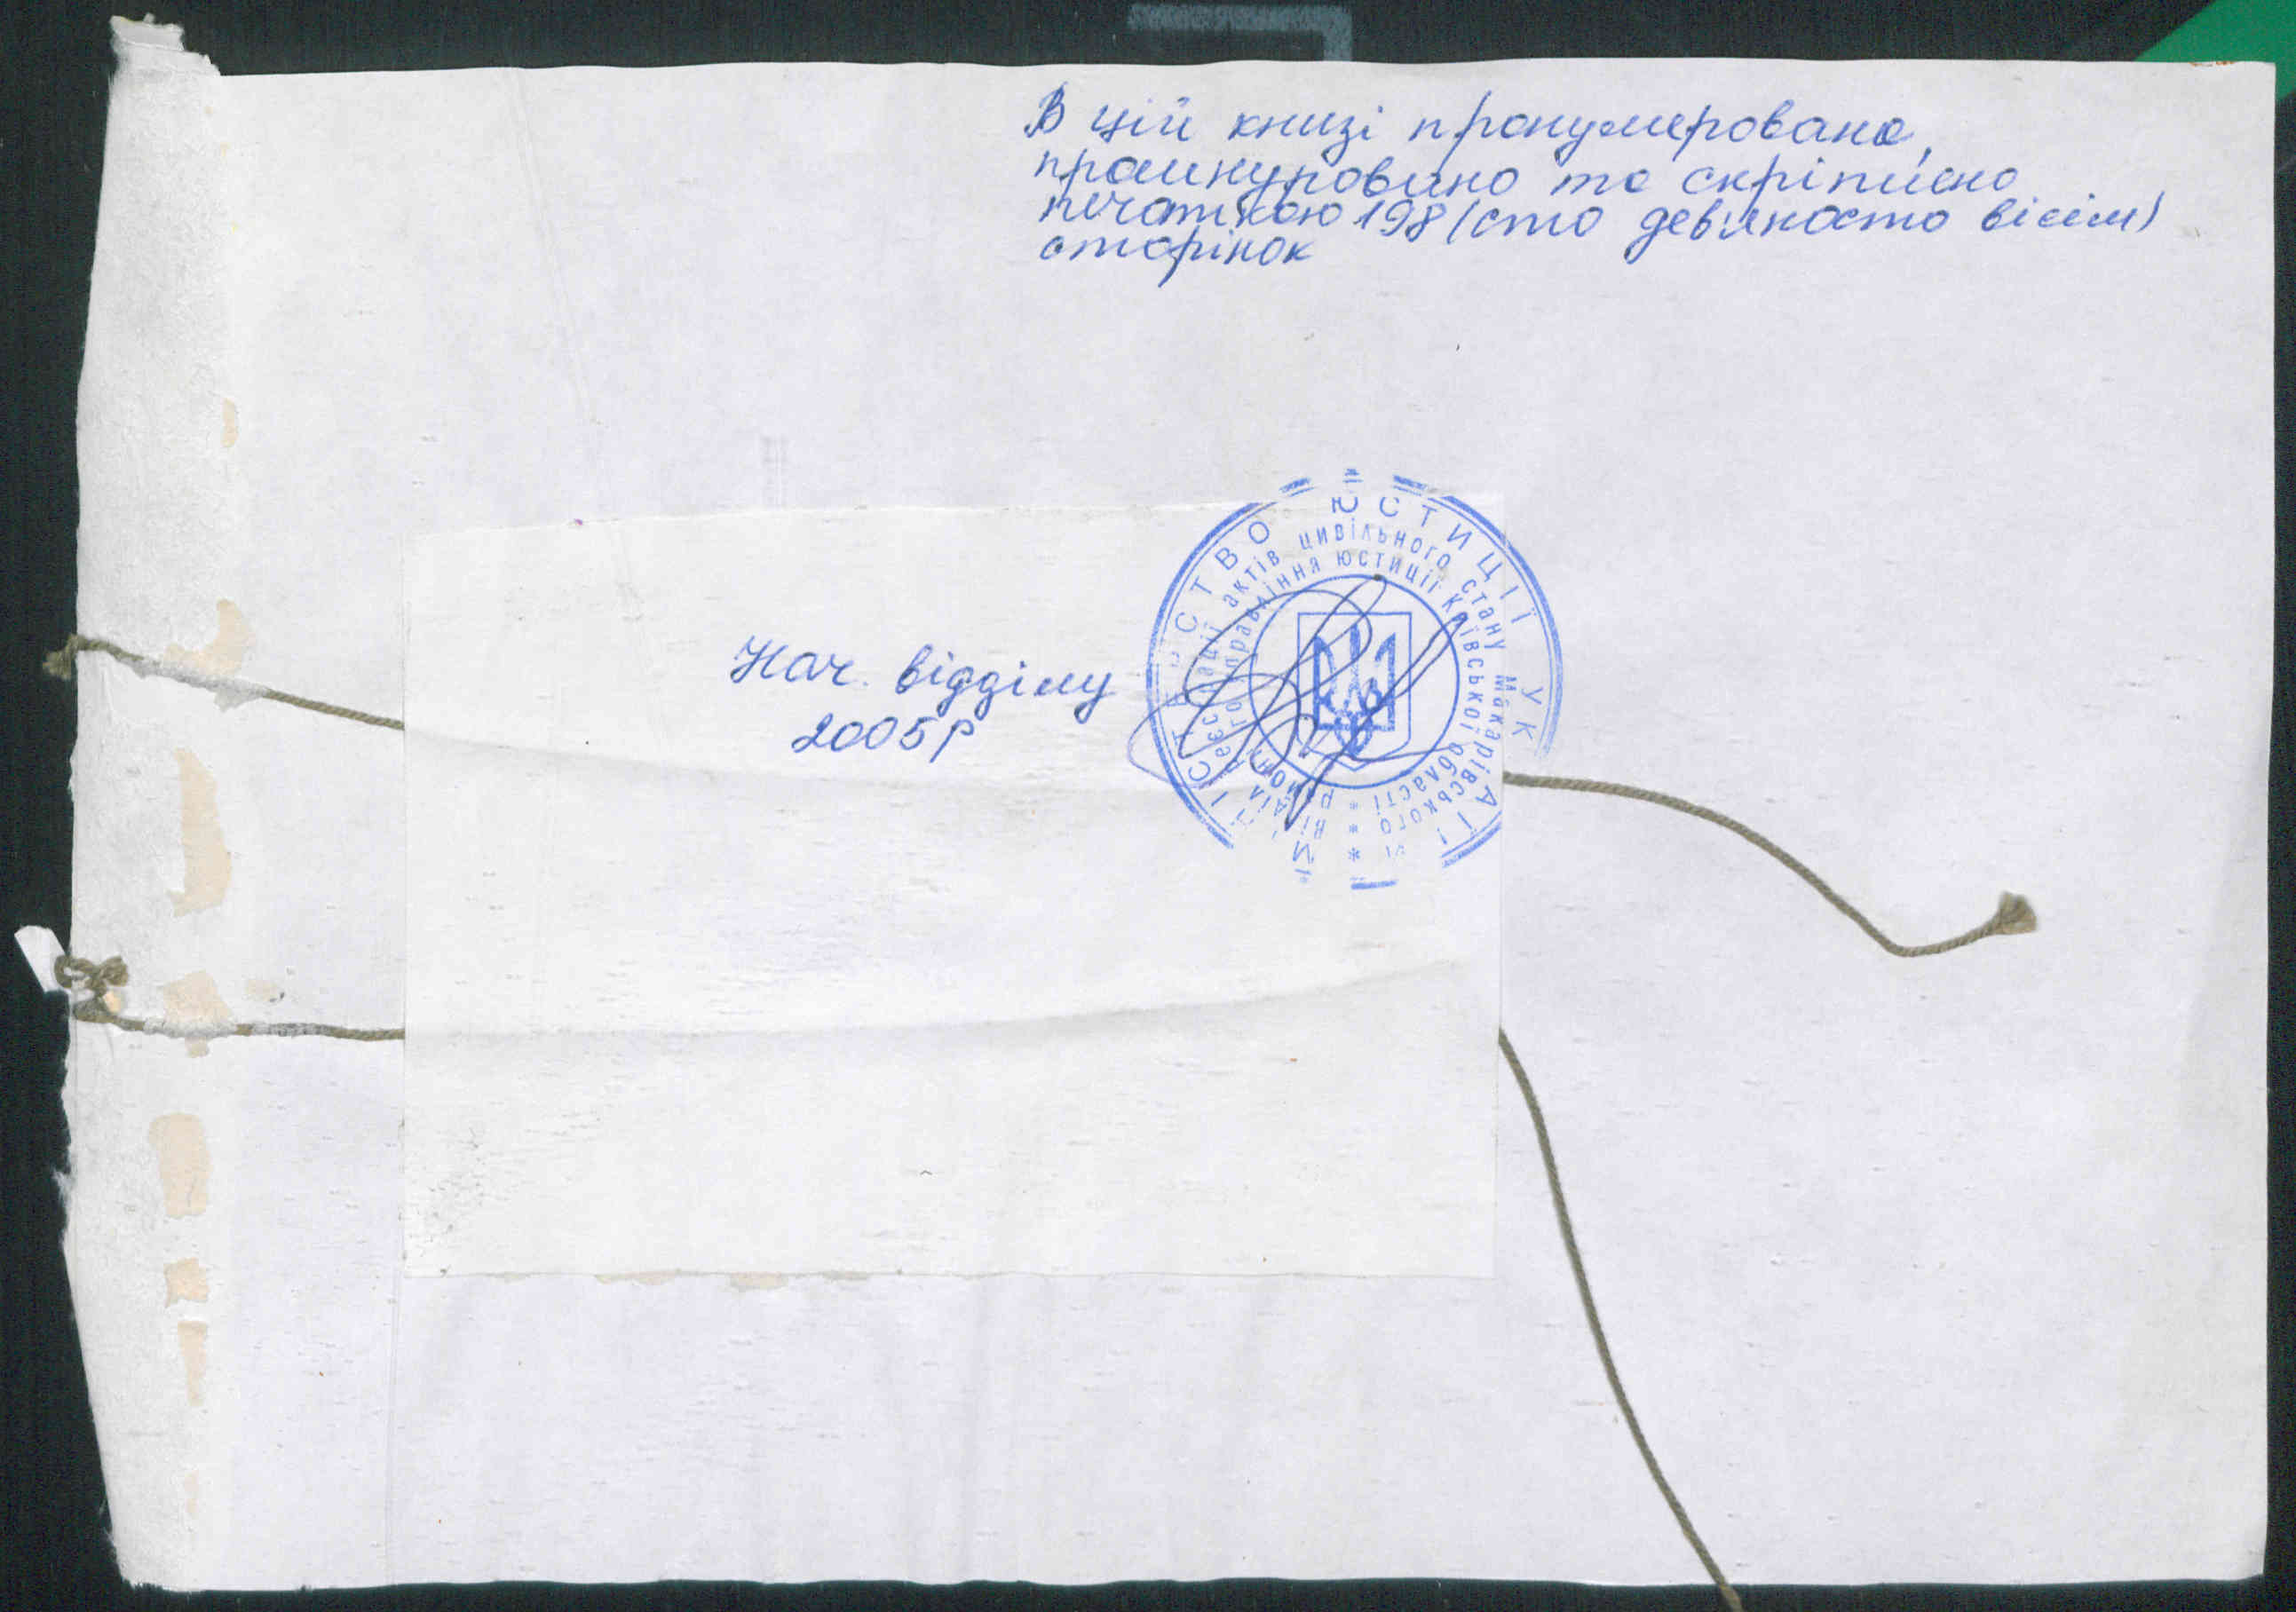 В цій книзі пронумеровано,
прошнуровано та скріплено
печаткою 198 (сто дев'яносто вісім)
сторінок
Нач. відділу
2005р
МІНІСТЕРСТВО ЮСТИЦІЇ УКРАЇНИ
Відділ реєстрації актів цивільного стану Макарівського
районного управління юстиції Київської області